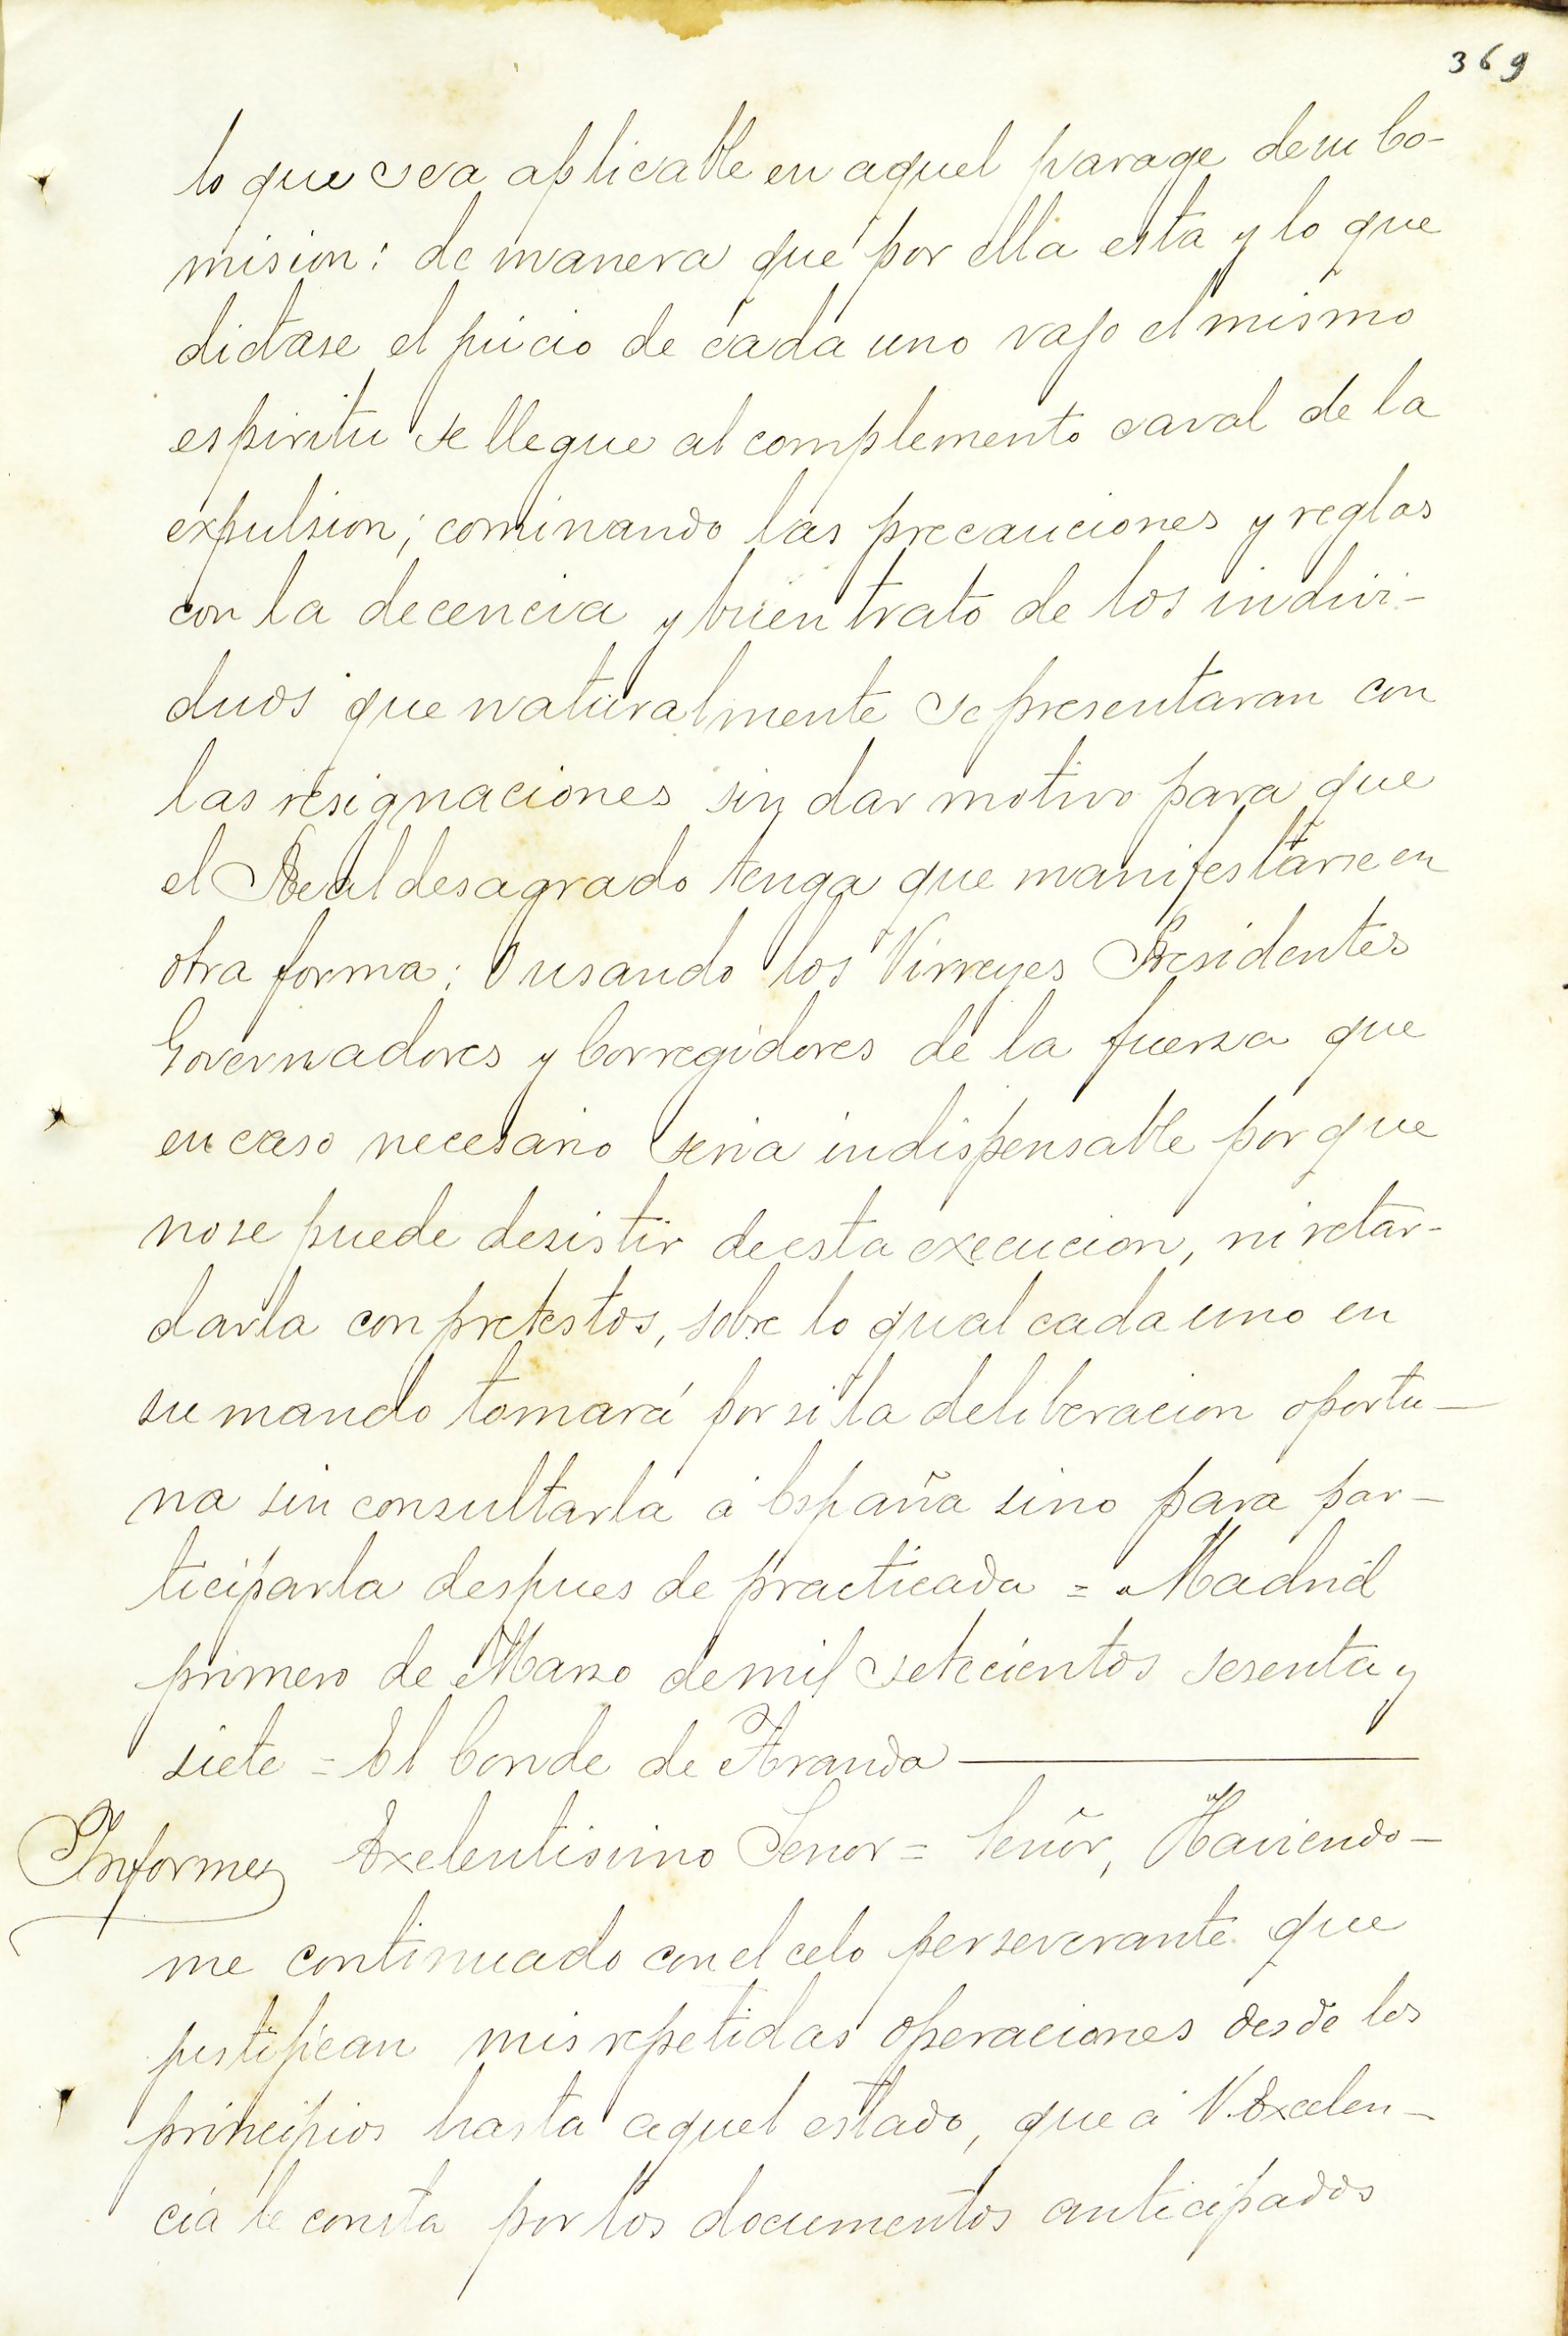 369
lo que sea aplicable en aquel parage de su Co-
mision: de manera que por ella esta y lo que
dictase el juicio de cada uno vajo el mismo
espiritu se llegue al complemento caval de la
expulsion; cominando las precauciones y reglas
con la decencia y buen trato de los indivi-
duos que naturalmente se presentaran con
las resignaciones sin dar motivo para que
el Real desagrado tenga que manifestarse en
otra forma; O usando los Virreyes Presidentes
Governadores y Corregidores de la fuerza que
en caso necesario seria indispensable por que
no se puede desistir de esta execucion, ni retar-
darla con pretestos, sobre lo qual cada uno en
su mando tomará por si la deliberacion oportu-
na sin consultarla á España sino para par-
ticiparla despues de practicada = Madrid
primero de Marzo de mil setecientos sesenta y
siete = El Conde de Aranda
Informe Exelentisimo Senor = Señor, Haviendo-
me continuado con el celo perseverante que
justifican mis repetidas operaciones desde los
principios hasta aquel estado, que á V. Excelen-
cia le consta por los documentos anticipados